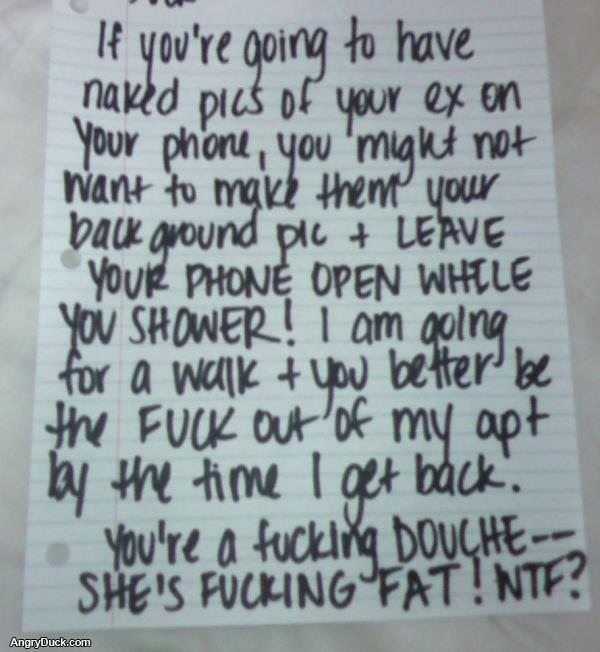 If you're going to have
naked pics of your ex on
your phone, you might not
want to make them your
background pic + LEAVE
YOUR PHONE OPEN WHILE
YOU SHOWER! I am going
for a walk + you better be
the FUCK out of my apt
by the time I get back.
You're a fucking DOUCHE--
SHE'S FUCKING FAT! NTF?
AngryDuck.com